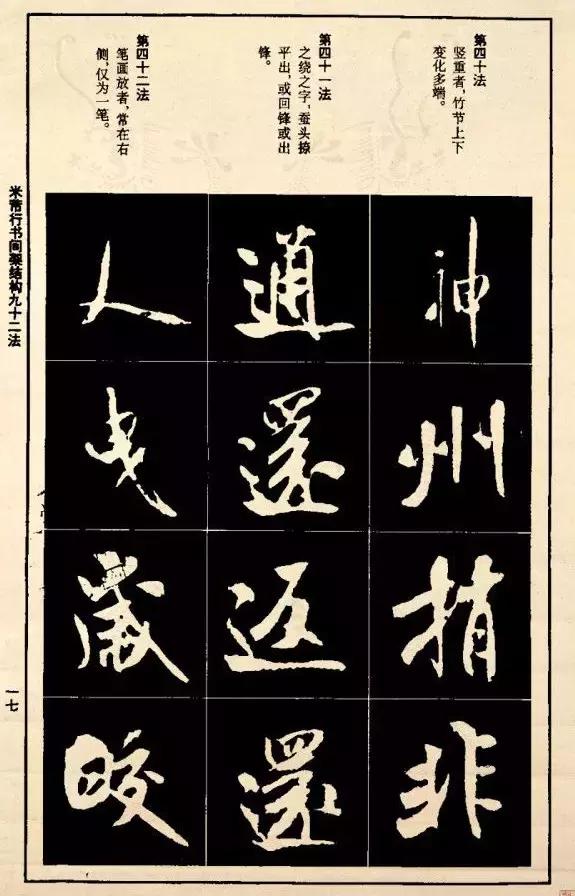 第四十法
竖重者，竹节上下
变化多端。
第四十一法
之绕之字，蚕头撩
平出，或回锋或出
锋。
第四十二法
笔画放者，常在右
侧，仅为一笔。
神
州
捎
非
通
還
返
還
人
曳
歲
皎
米芾行书间架结构九十二法
一七